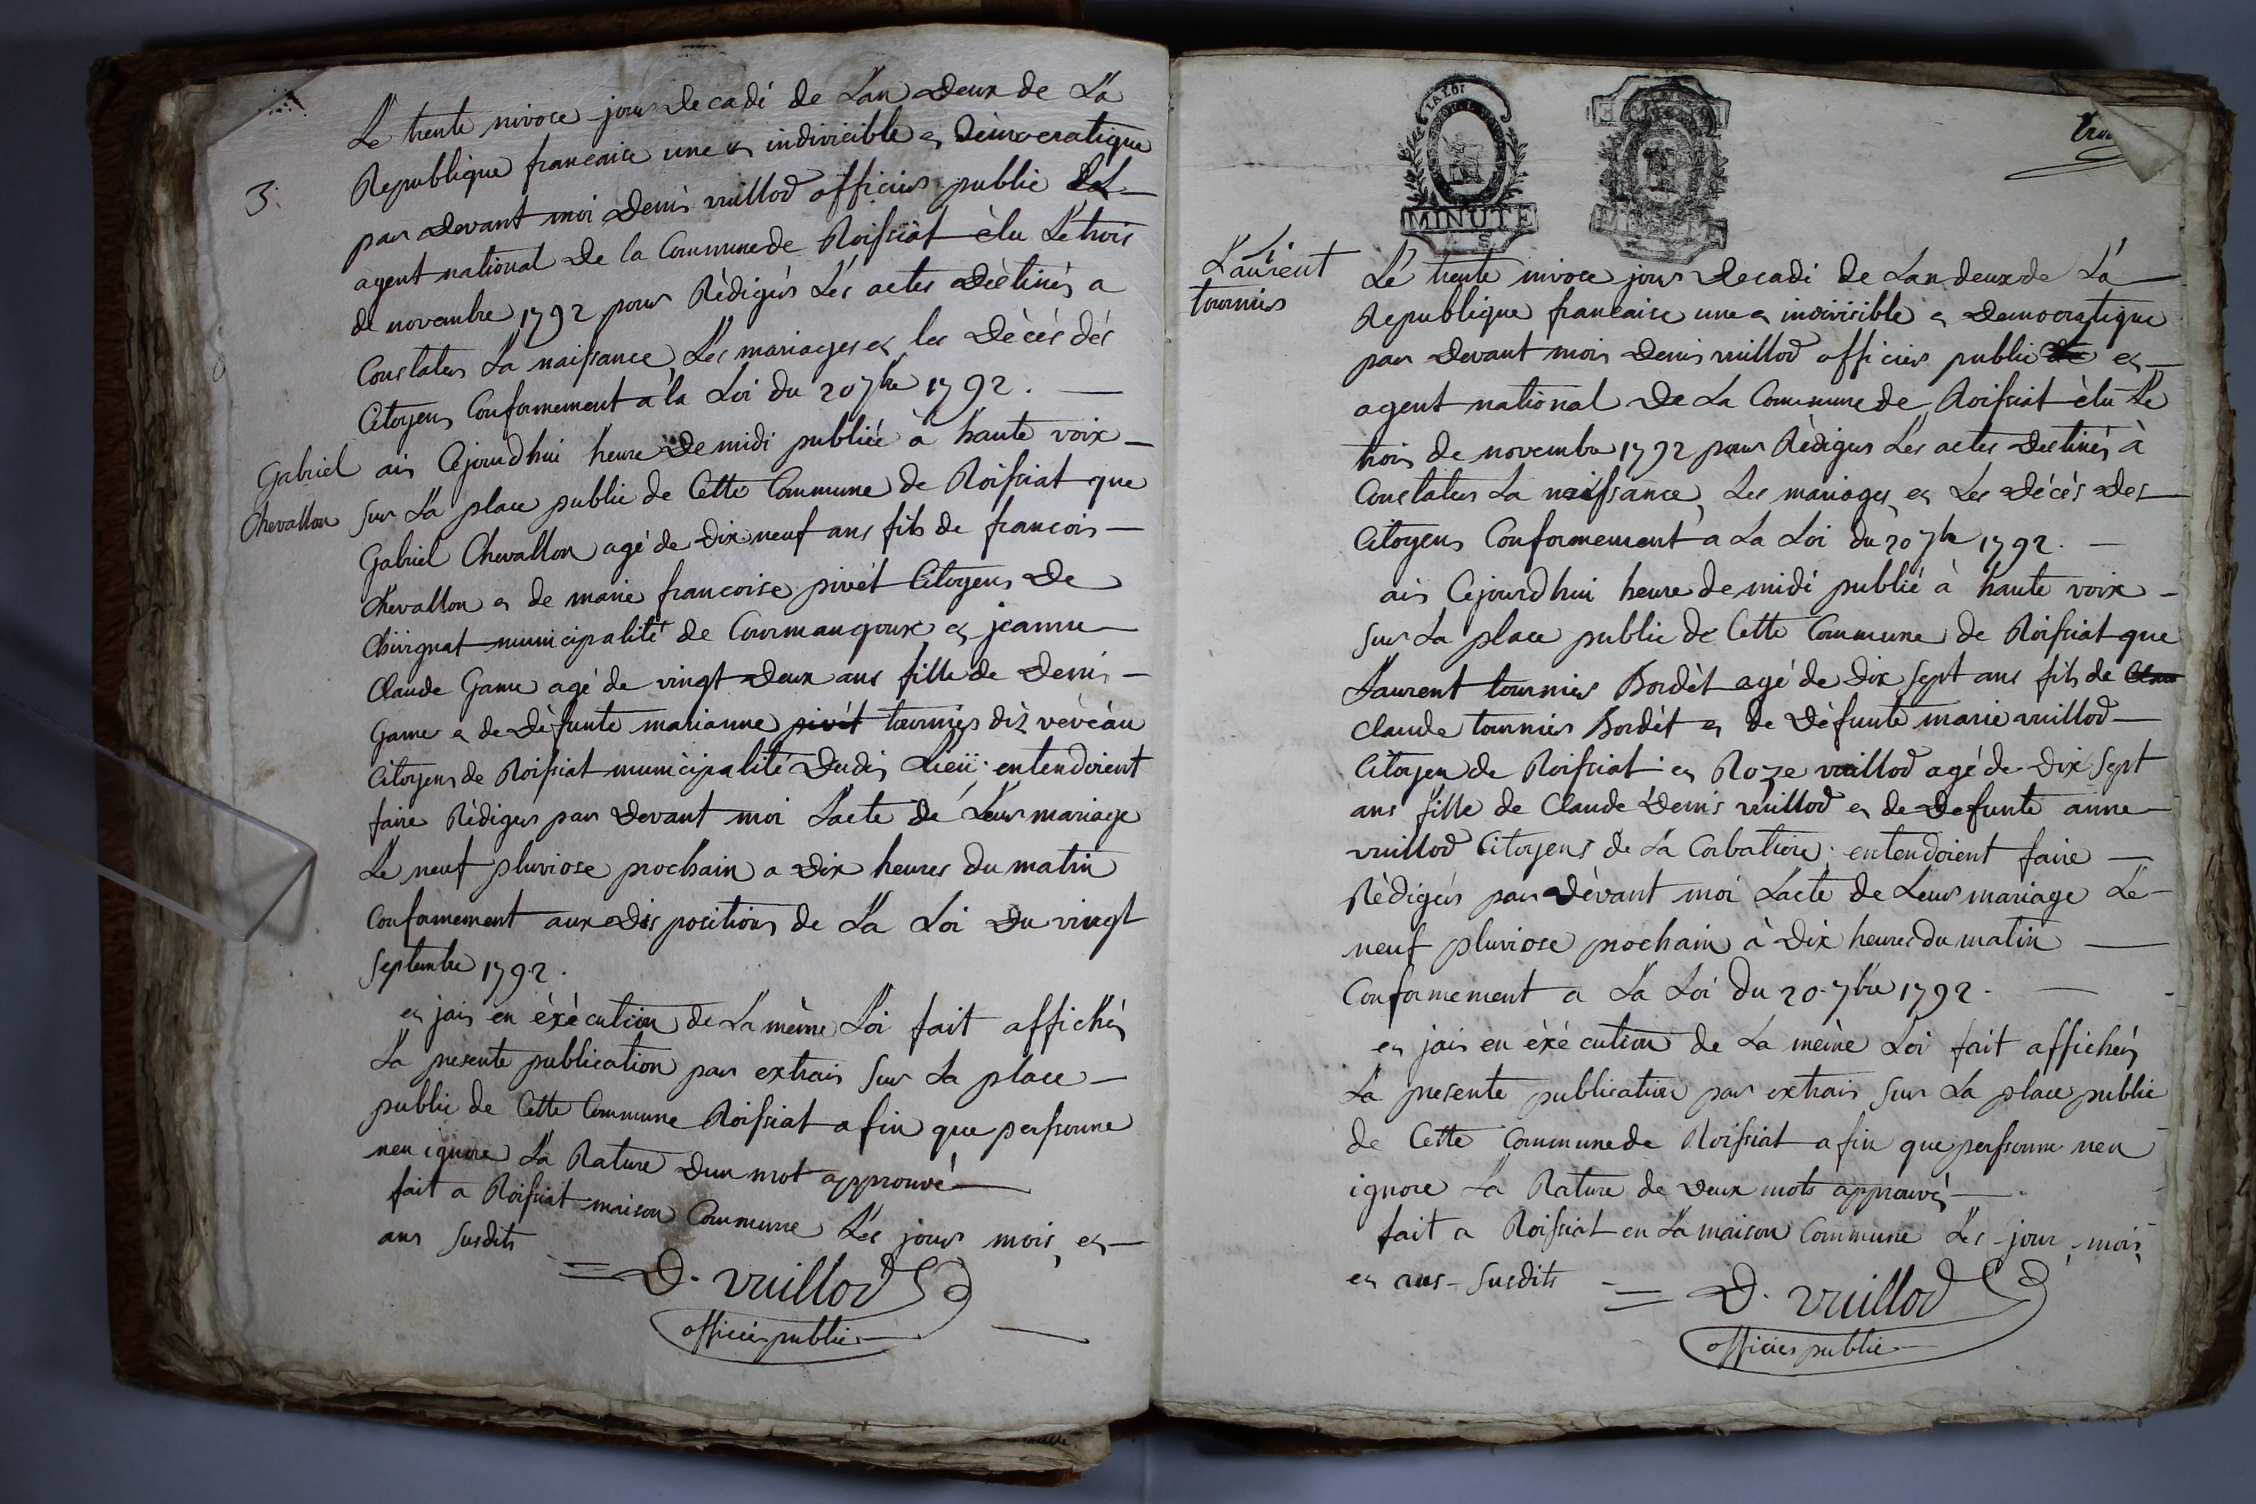 3.
Le trente nivose jour decadi de Lan deux de La
Republique francaise une et indivicible et Démocratique
par devant moi denis vuillod officier public et
agent national de la Commune de Roissiat élu Le trois
de novembre 1792 pour Rédigér Lés actes déétinés a
Constater La naissance, Les mariages et les Décés dés
Citoyens Conformement a la Loi du 20 7bre 1792.
Gabriel
Chevallon
ais Cejourdhui heure de midi publiée à haute voix
sur La place public de Cette Commune de Roissiat que
Gabriel Chevallon agé de Dix neuf ans fils de francois
Chevallon et de marie francoise pivét Citoyens De
Chivignat municipalité de Courmangoux et jeanne
Claude Game agé de vingt deux ans fille de Denis
Game et de Défunte marianne pivét tournier dit vévéau
Citoyens de Roissiat municipalité Dudit Lieü. entendoient
faire Rédiger par devant moi Lacte dé Leur mariage
Le neuf pluviose prochain a Dix heures du matin
Conformement aux Dis positions de La Loi Du vingt
septembre 1792.
et jais en éxécution de La même Loi fait affichér
La presente publication par extrais sur La place
public de Cette Commune Roissiat a fin que perssonne
nen ignore La Rature dun mot approuvé
fait a Roissiat maison Commune Lés jour mois et
ans susdits
D. vuillod
officier public
LA LOI
MINUTE
Laurent
tournier
Lé trente nivose jour decadi de Lan deux de Lá
Republique francaise une et indivisible et Democratique
par devant mois Denis vuillod officier public et
agent national De La Commune de Roissiat élu Le
trois de novembre 1792 pour Rédiger Les actes dectinés à
Constater La naissance, Les mariages et Les Décés Des
Citoyens Conformement a La Loi du 20 7bre 1792.
ais Cejourdhui heure de midi publié à haute voix
sur La place public de Cette Commune de Roissiat que
Laurent tournier Bordét agé de Dix sept ans fils de
Claude tournier Bordét et de Défunte marie vuillod
Citoyen de Roissiat et Roze vuillod agé de Dix sept
ans fille de Claude Denis vuillod et de Defunte anne
vuillod Citoyens de La Corbatiere; entendoient faire
Rédigér par dévant moi Lacte de Leur mariage Le
neuf pluviose prochain à Dix heures du matin
Conformement a La Loi du 20. 7bre 1792.
et jais en éxé cution de La méme Loi fait affichér
La presente publication par extrais sur La place public
de Cette Commune de Roissiat a fin que perssonne nen
ignore La Rature de Deux mots approuvés
fait a Roissiat en La maison Commune Les jour, mois,
et ans susdits
D. vuillod
officier public